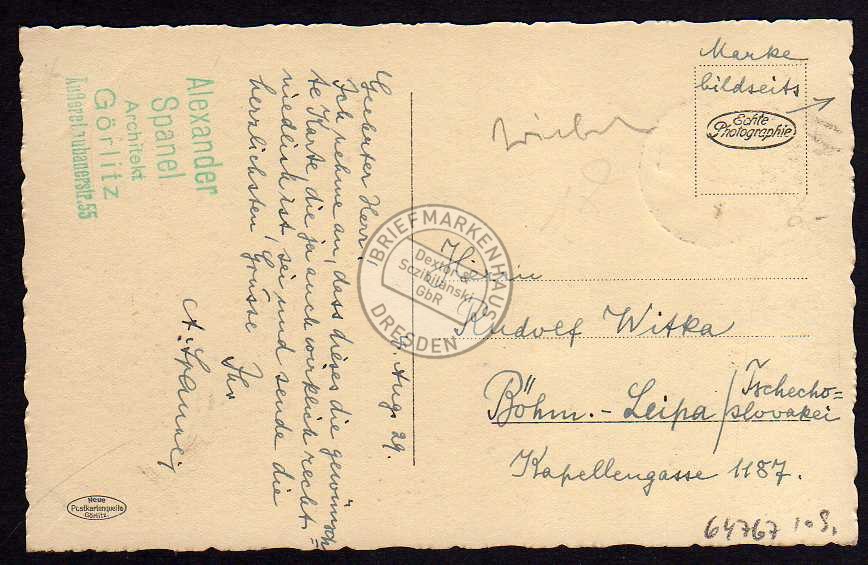 Alexander
Spanel
Architekt
Görlitz
Äußere Laubanerstr. 55
9. Aug. 29.
Geehrter Herr!
Ich nehme an, dass dieses die gewünsch=
te Karte, die ja auch wirklich recht
niedlich ist, sei und sende die
herzlichsten Grüsse
Ihr
A. Spanel
Marke
bildseits
Echte
Photographie
Herrn
Rudolf Witka
Böhm.-Leipa / Tschecho=
slovakei
Kapellengasse 1187.
64767 10.S.
Neue
Postkartenquelle
Görlitz
BRIEFMARKENHAUS
Dextor &
Sczibilanski
GbR
DRESDEN